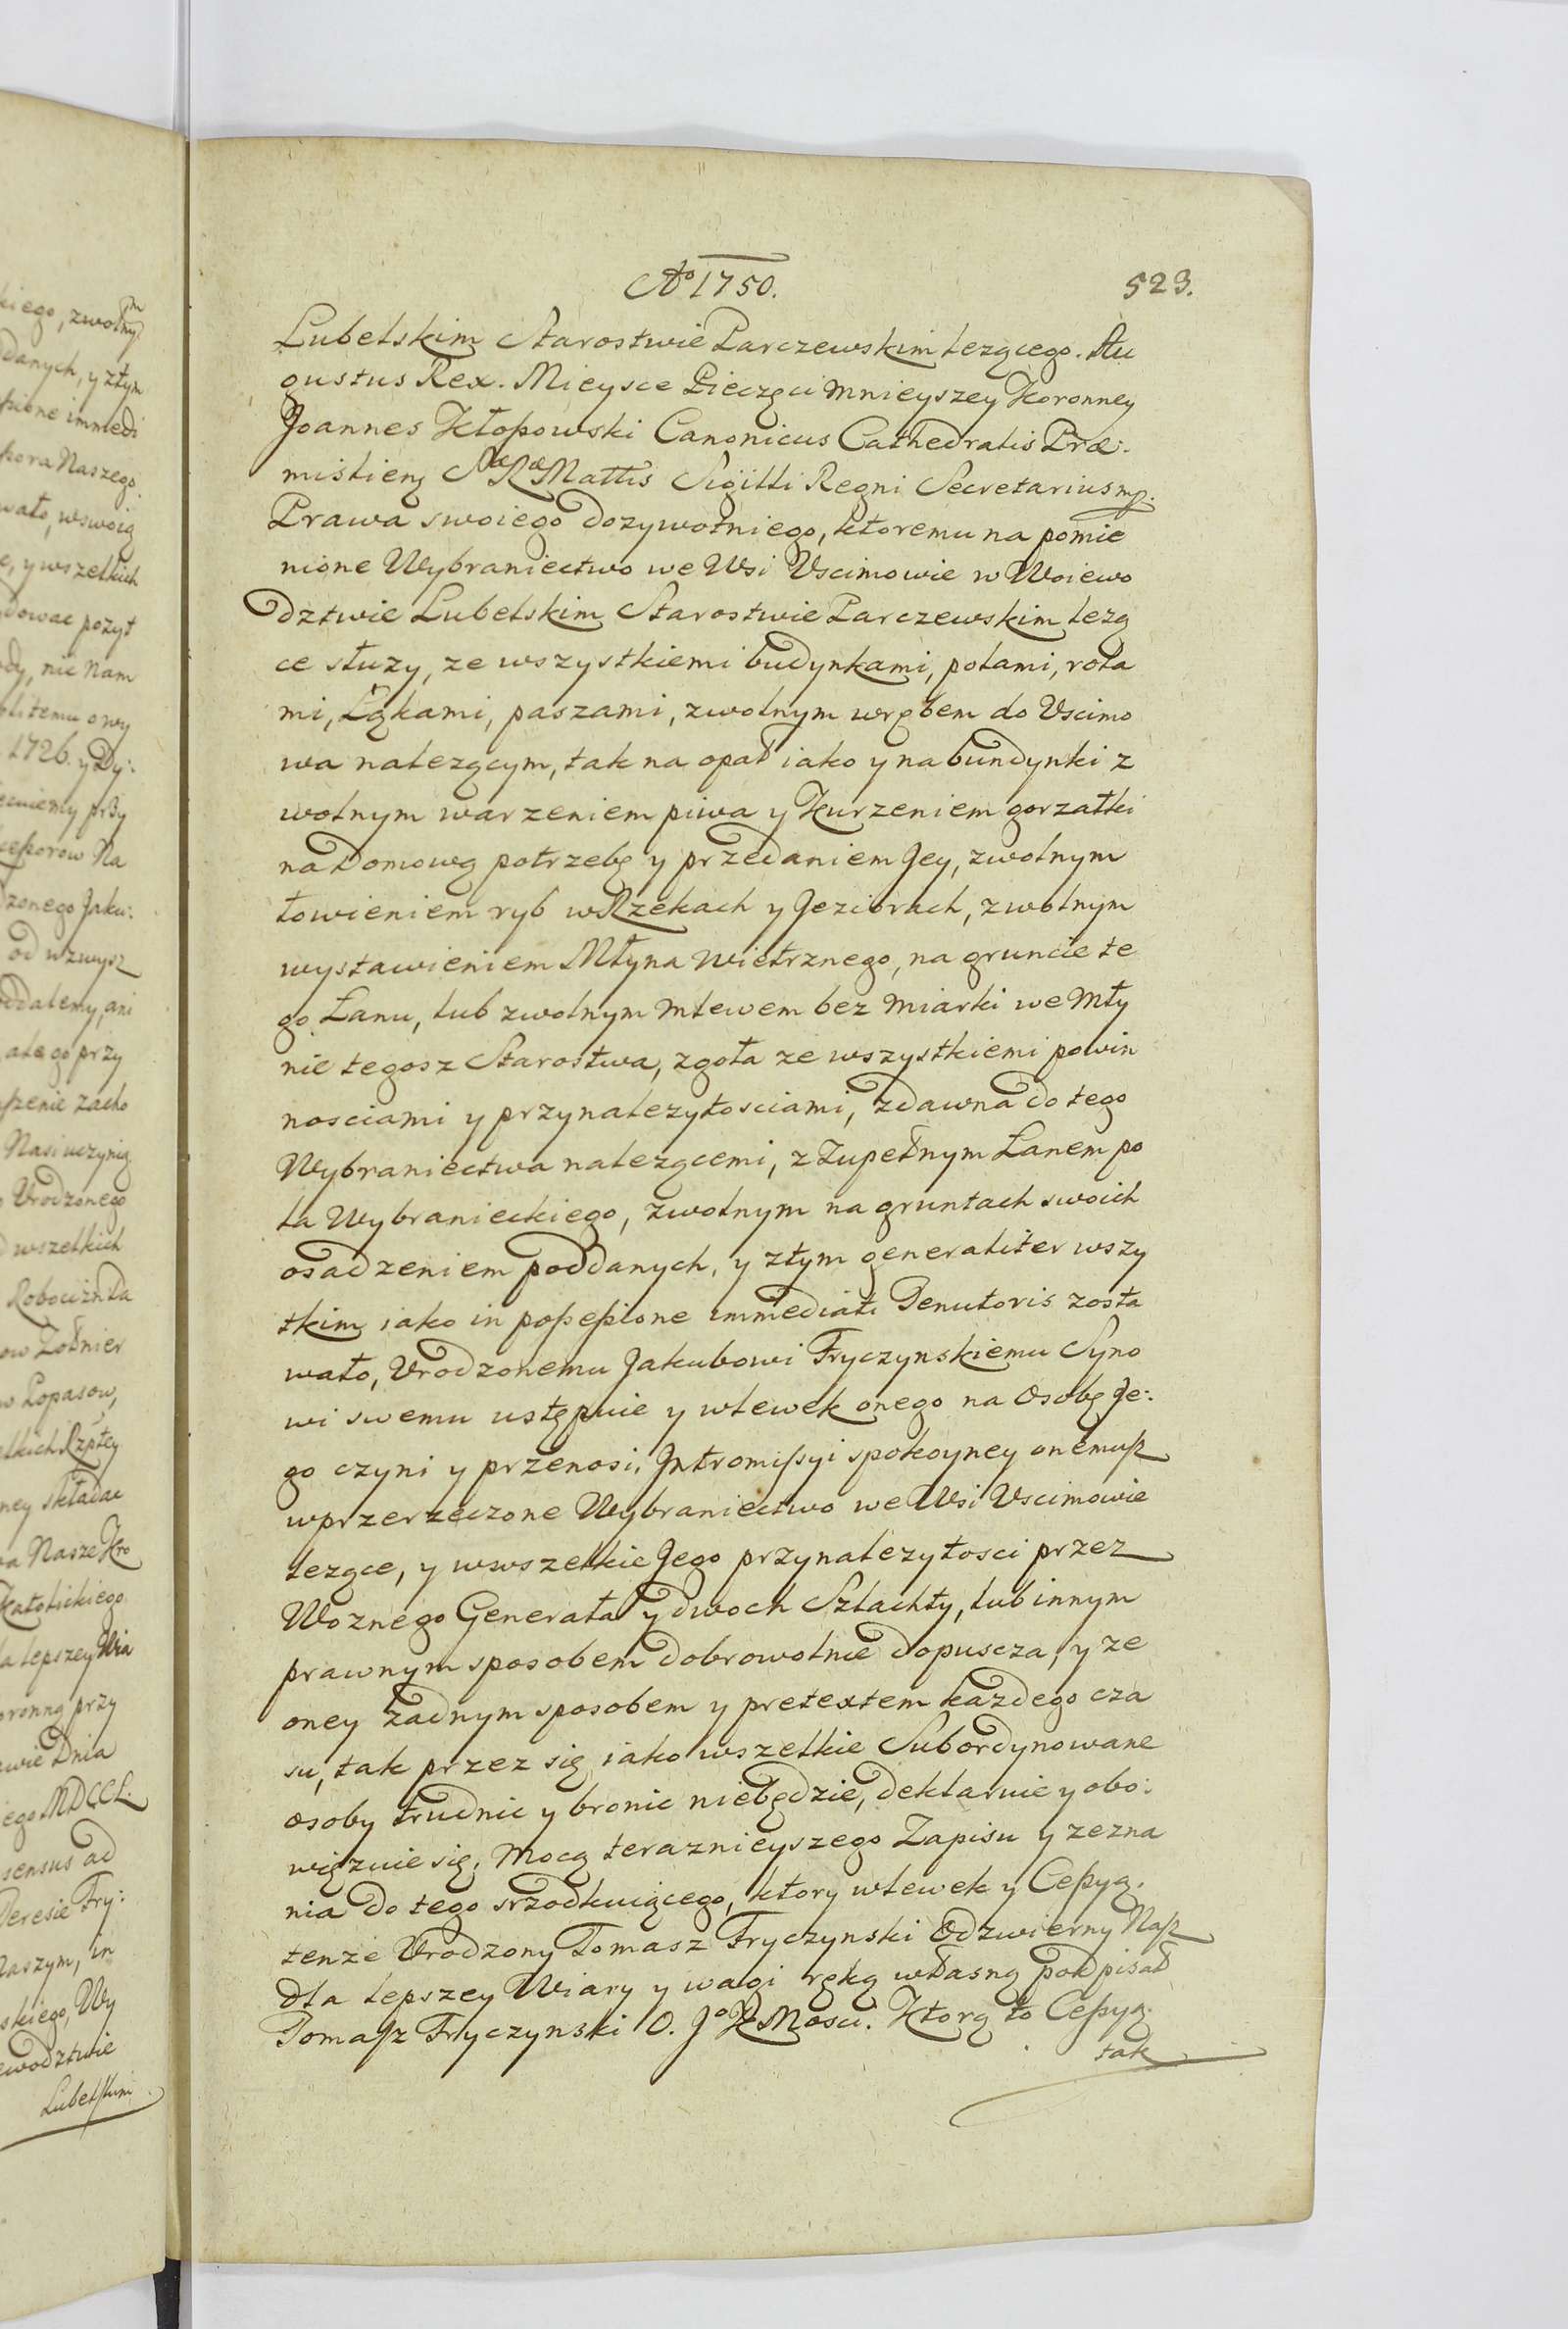 Ao 1750.
523.
Lubelskim Starostwie Parczewskim lezącego. Au
gustus Rex. Mieysce Pieczęci mnieyszey Koronney
Joannes Kłopowski Canonicus Cathedralis Præ:
mislien S R Mattis Sigilli Regni Secretarius mp.
Prawa swoiego dozywotniego, ktoremu na pomie
nione Wybraniectwo we Wsi Uscimowie w Woiewo
dztwie Lubelskim Starostwie Parczewskim lezą
ce słuzy, ze wszystkiemi budynkami, polami, rola
mi, Łąkami, paszami, zwolnym wrębem do Uscimo
wa nalezącym, tak na opał iako y na bundynki z
wolnym warzeniem piwa y Kurzeniem gorzałki
na Domową potrzebę y przedaniem Jey, zwolnym
łowieniem ryb w Rzekach y Jeziorach, zwolnym
wystawieniem Młyna Wietrznego, na gruncie te
go Łanu, lub zwolnym mlewem bez miarki we Mły
nie tegosz Starostwa, zgoła ze wszystkiemi powin
nosciami y przynalezytosciami, zdawna do tego
Wybraniectwa nalezącemi, z Zupełnym Łanem po
la Wybranieckiego, zwolnym na gruntach swoich
osadzeniem poddanych, y z tym generaliter wszy
tkim iako in poßeßione immediati Tenutoris zosta
wało, Urodzonemu Jakubowi Fryczynskiemu Syno
wi swemu ustępuie y wlewek onego na Osobę Je:
go czyni y przenosi, Intromißyi spokoyney onemuß
w przerzeczone Wybraniectwo we Wsi Uscimowie
lezące, y w wszelkie Jego przynalezytosci przez
Woznego Generała y dwoch Szlachty, lub innym
prawnym sposobem dobrowolnie dopuscza, y ze
oney żadnym sposobem y pretextem każdego cza
su, tak przez się iako wszelkie Subordynowane
osoby trudnic y bronic niebędzie, deklaruie y obo:
wiązuie się, Mocą teraznieyszego Zapisu y zezna
nia do tego srzodkuiącego, ktory wlewek y Ceßyą.
tenże Urodzony Tomasz Fryczynski Odzwierny Naß
dla lepszey Wiary y wagi ręką własną podpisał
Tomaß Fryczynski O. Jo K Mosci. Ktorą to Ceßyą
tak